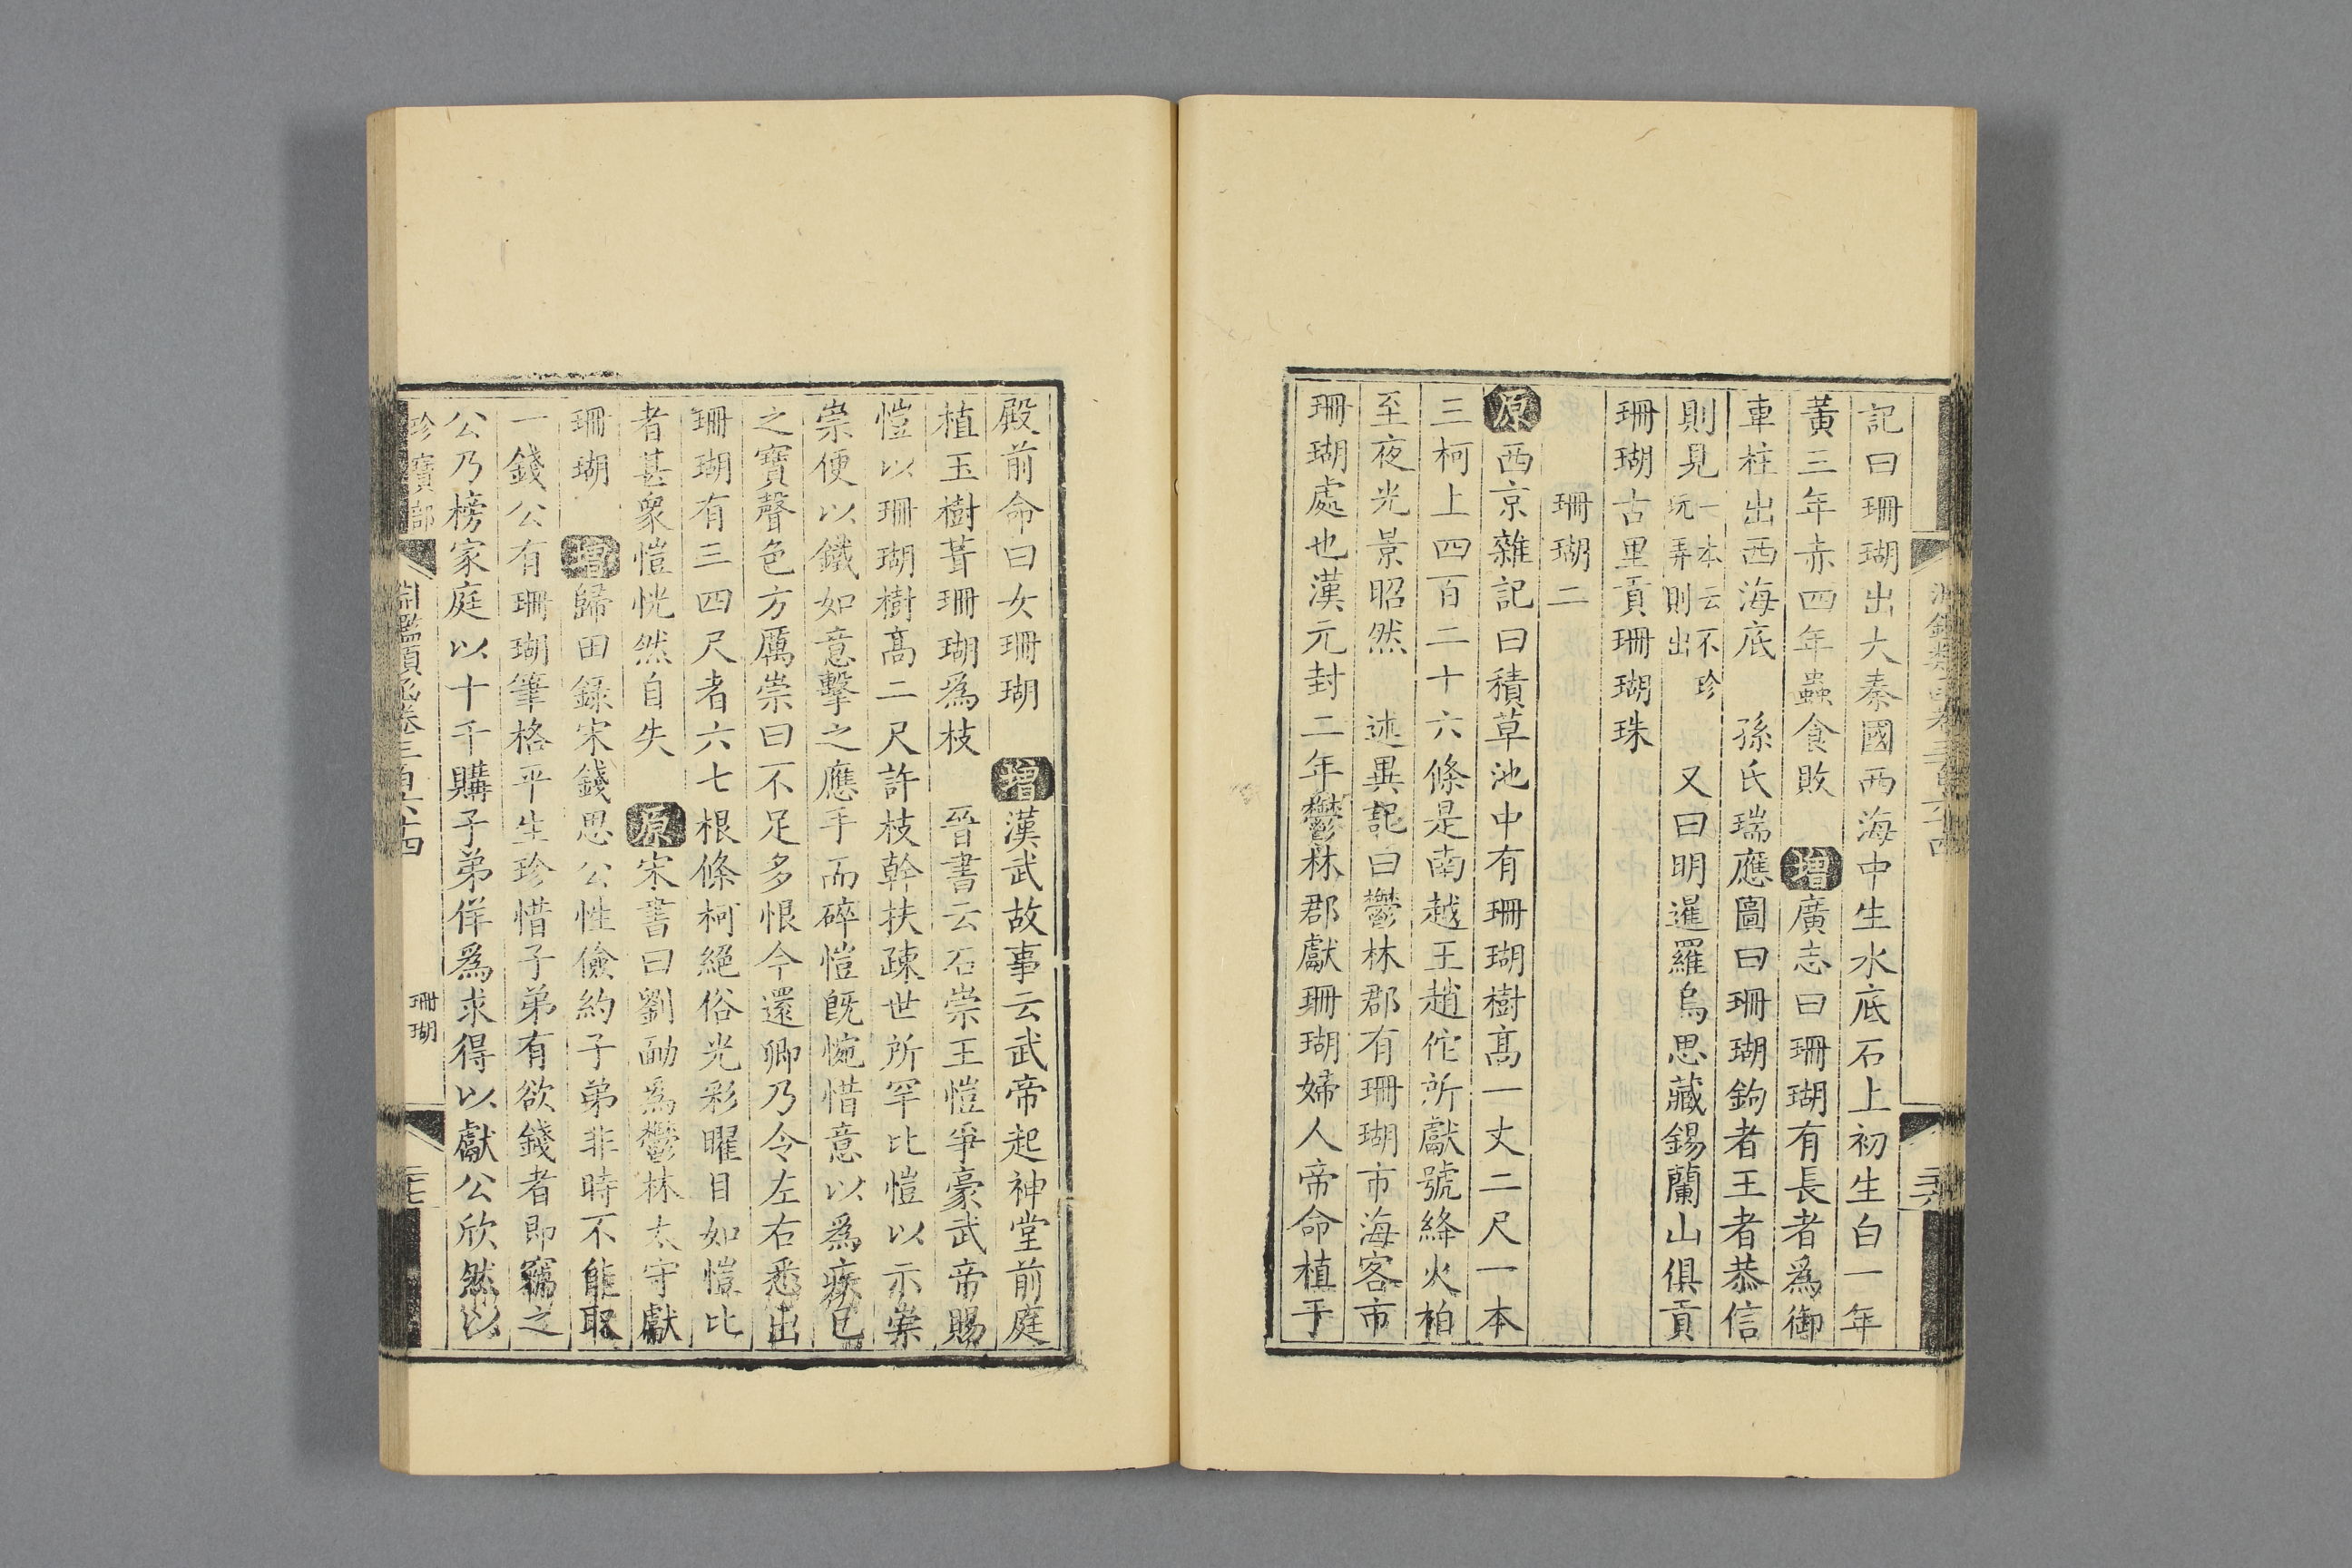 記曰珊瑚出大秦國西海中生水底石上初生白一年
黃三年赤四年蟲食敗 增廣志曰珊瑚有長者爲御
車柱出西海底 孫氏瑞應圖曰珊瑚鉤者王者恭信
則見一本云不珍玩弄則出 又曰明暹羅烏思藏錫蘭山俱貢
珊瑚古里貢珊瑚珠
珊瑚二
原西京雜記曰積草池中有珊瑚樹高一丈二尺一本
三柯上四百二十六條是南越王趙佗所獻號絳火柏
至夜光景昭然 述異記曰鬱林郡有珊瑚市海客市
珊瑚處也漢元封二年鬱林郡獻珊瑚婦人帝命植于
殿前命曰女珊瑚 增漢武故事云武帝起神堂前庭
植玉樹葺珊瑚爲枝 晉書云石崇王愷爭豪武帝賜
愷以珊瑚樹高二尺許枝幹扶疎世所罕比愷以示崇
崇便以鐵如意擊之應手而碎愷旣惋惜意以爲疾已
之寶聲色方厲崇曰不足多恨今還卿乃令左右悉出
珊瑚有三四尺者六七根條柯絕俗光彩曜目如愷比
者甚衆愷恍然自失 原宋書曰劉勔爲鬱林太守獻
珊瑚 增歸田錄宋錢思公性儉約子弟非時不能取
一錢公有珊瑚筆格平生珍惜子弟有欲錢者即竊之
公乃榜家庭以十千購子弟佯爲求得以獻公欣然以
珍寶部 淵鑑類函卷三百六十四 珊瑚 二七